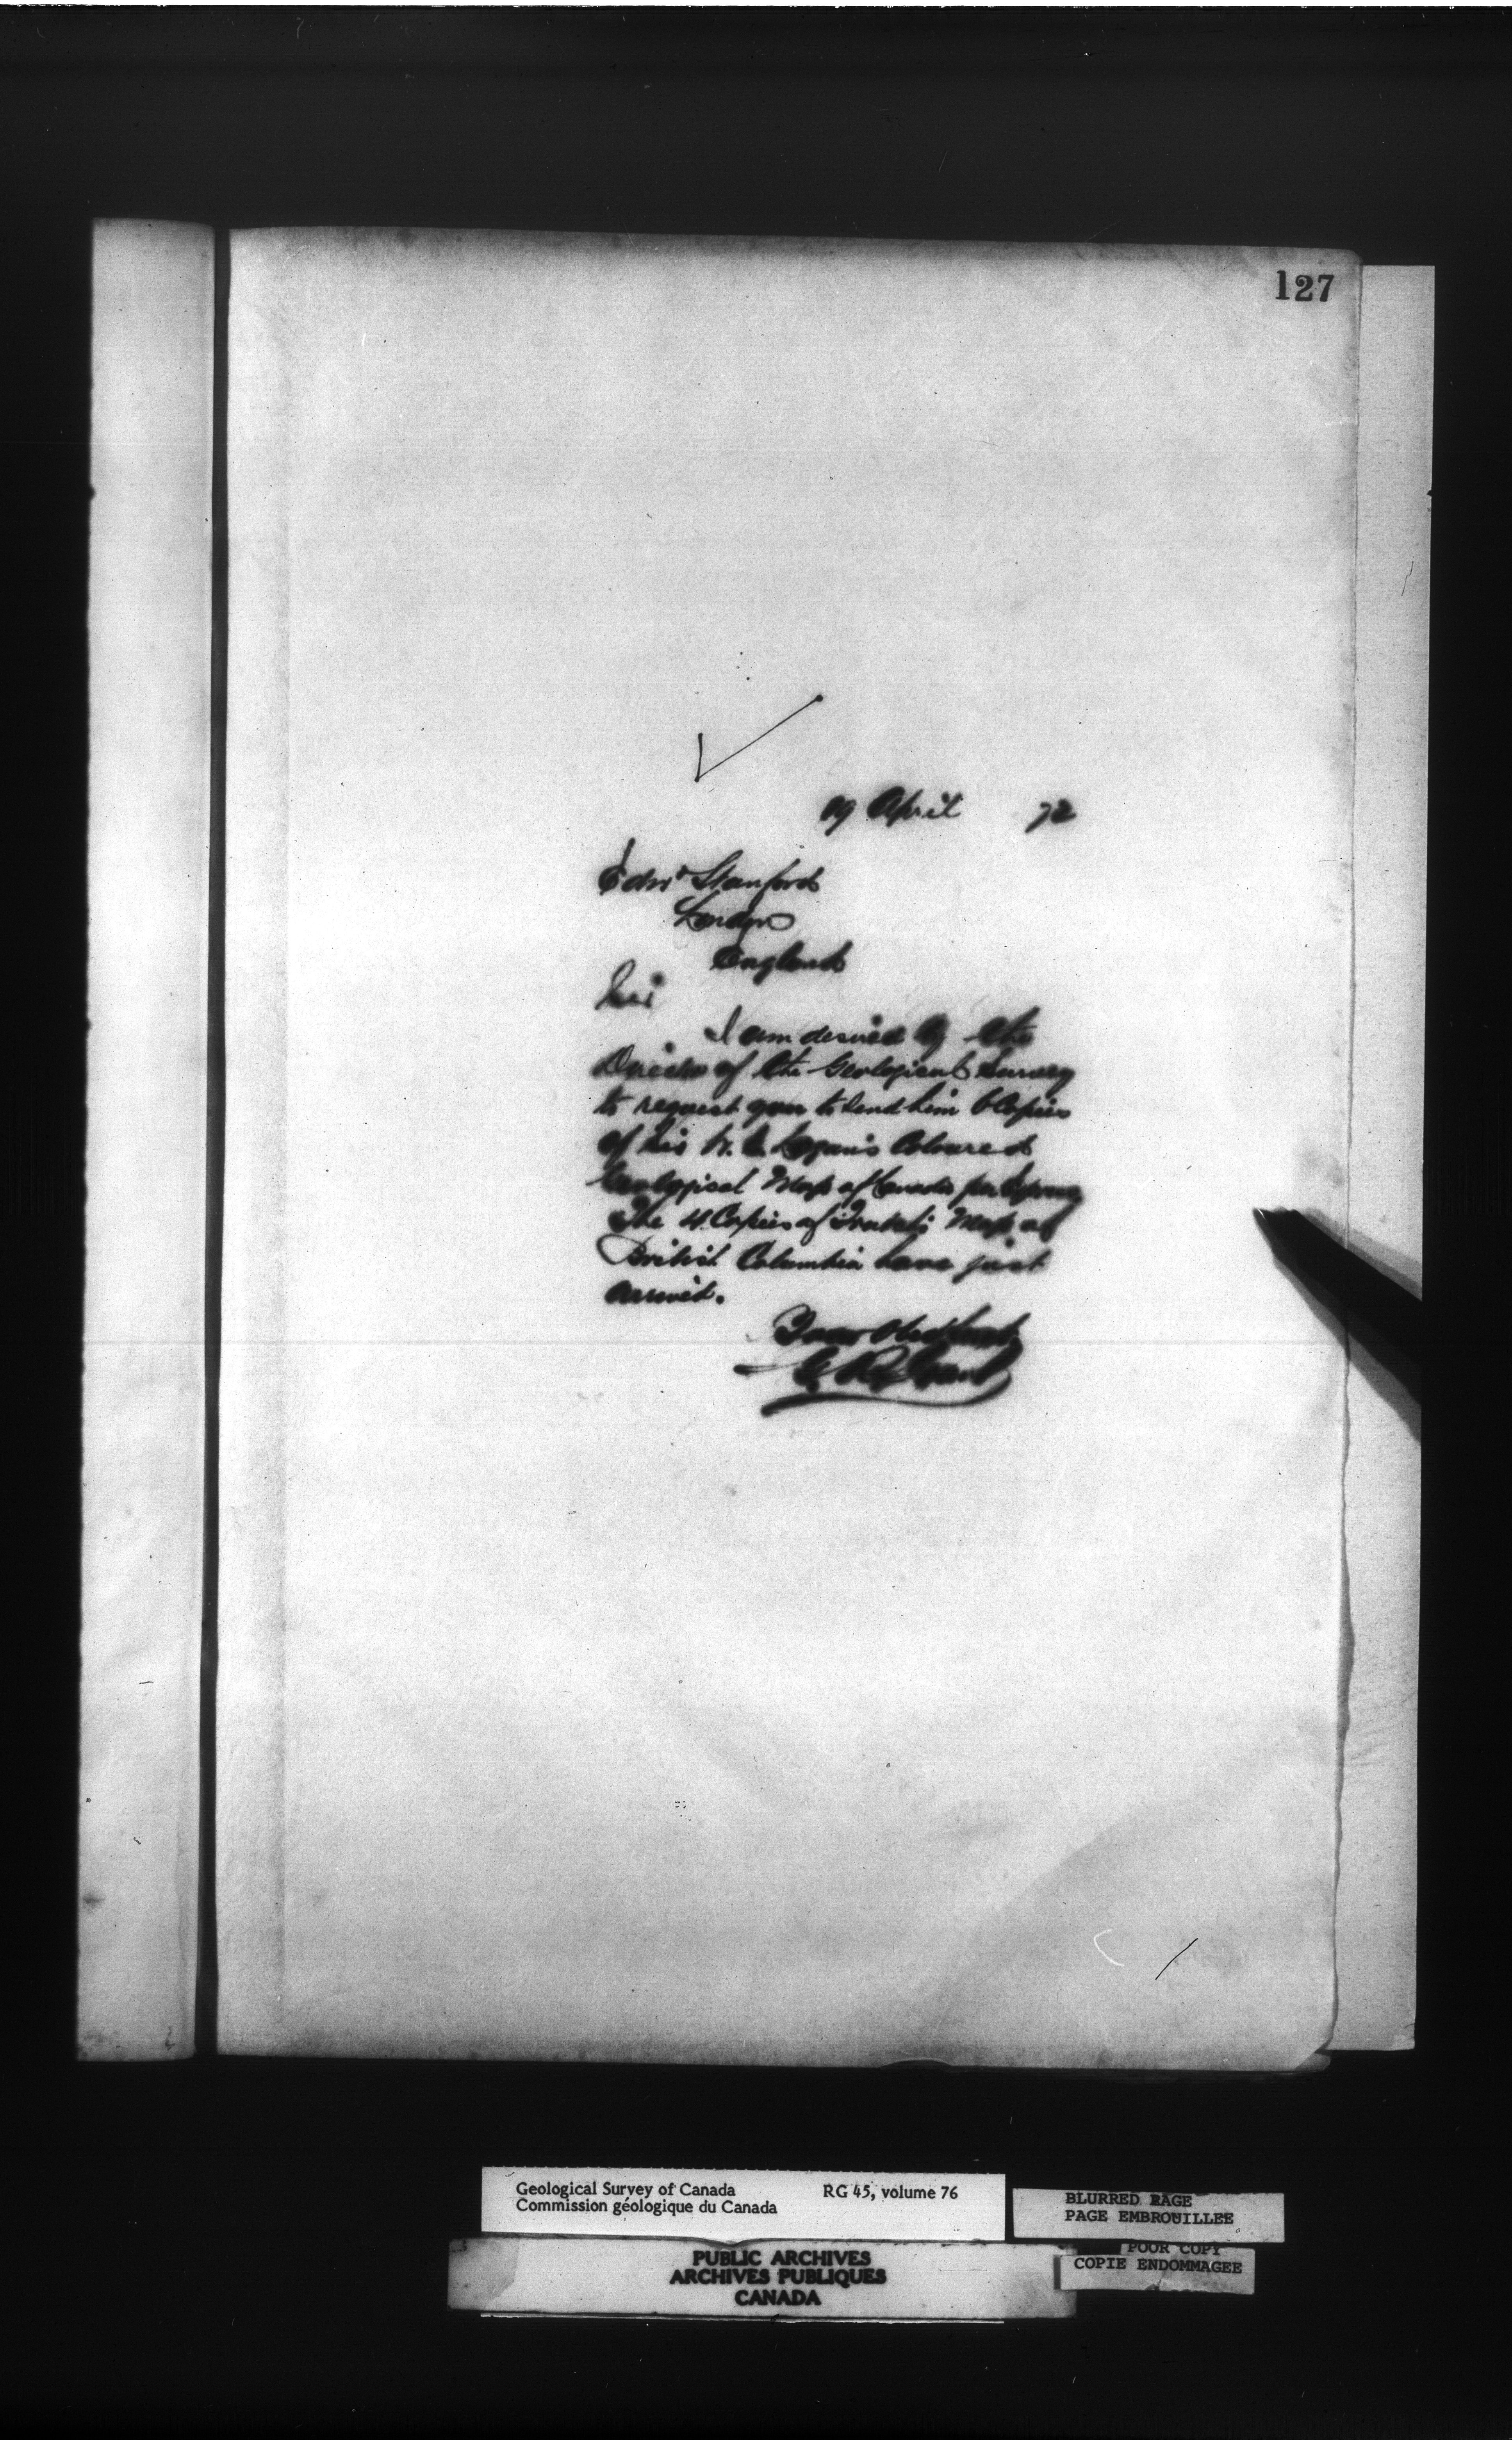 127
19 April 72
Edwd Stanford
London
England
Sir
I am desired by the
Director of the Geological Survey
to request you to send him 6 Copies
of Sir W. E. Logan's Coloured
Geological Map of Canada per
The 4 Copies of Trutch's Map of
British Columbia have just
arrived.
Your Obed Servt
Grant
Geological Survey of Canada RG 45, volume 76
Commission géologique du Canada
BLURRED PAGE
PAGE EMBROUILLEE
POOR COPY
COPIE ENDOMMAGEE
PUBLIC ARCHIVES
ARCHIVES PUBLIQUES
CANADA